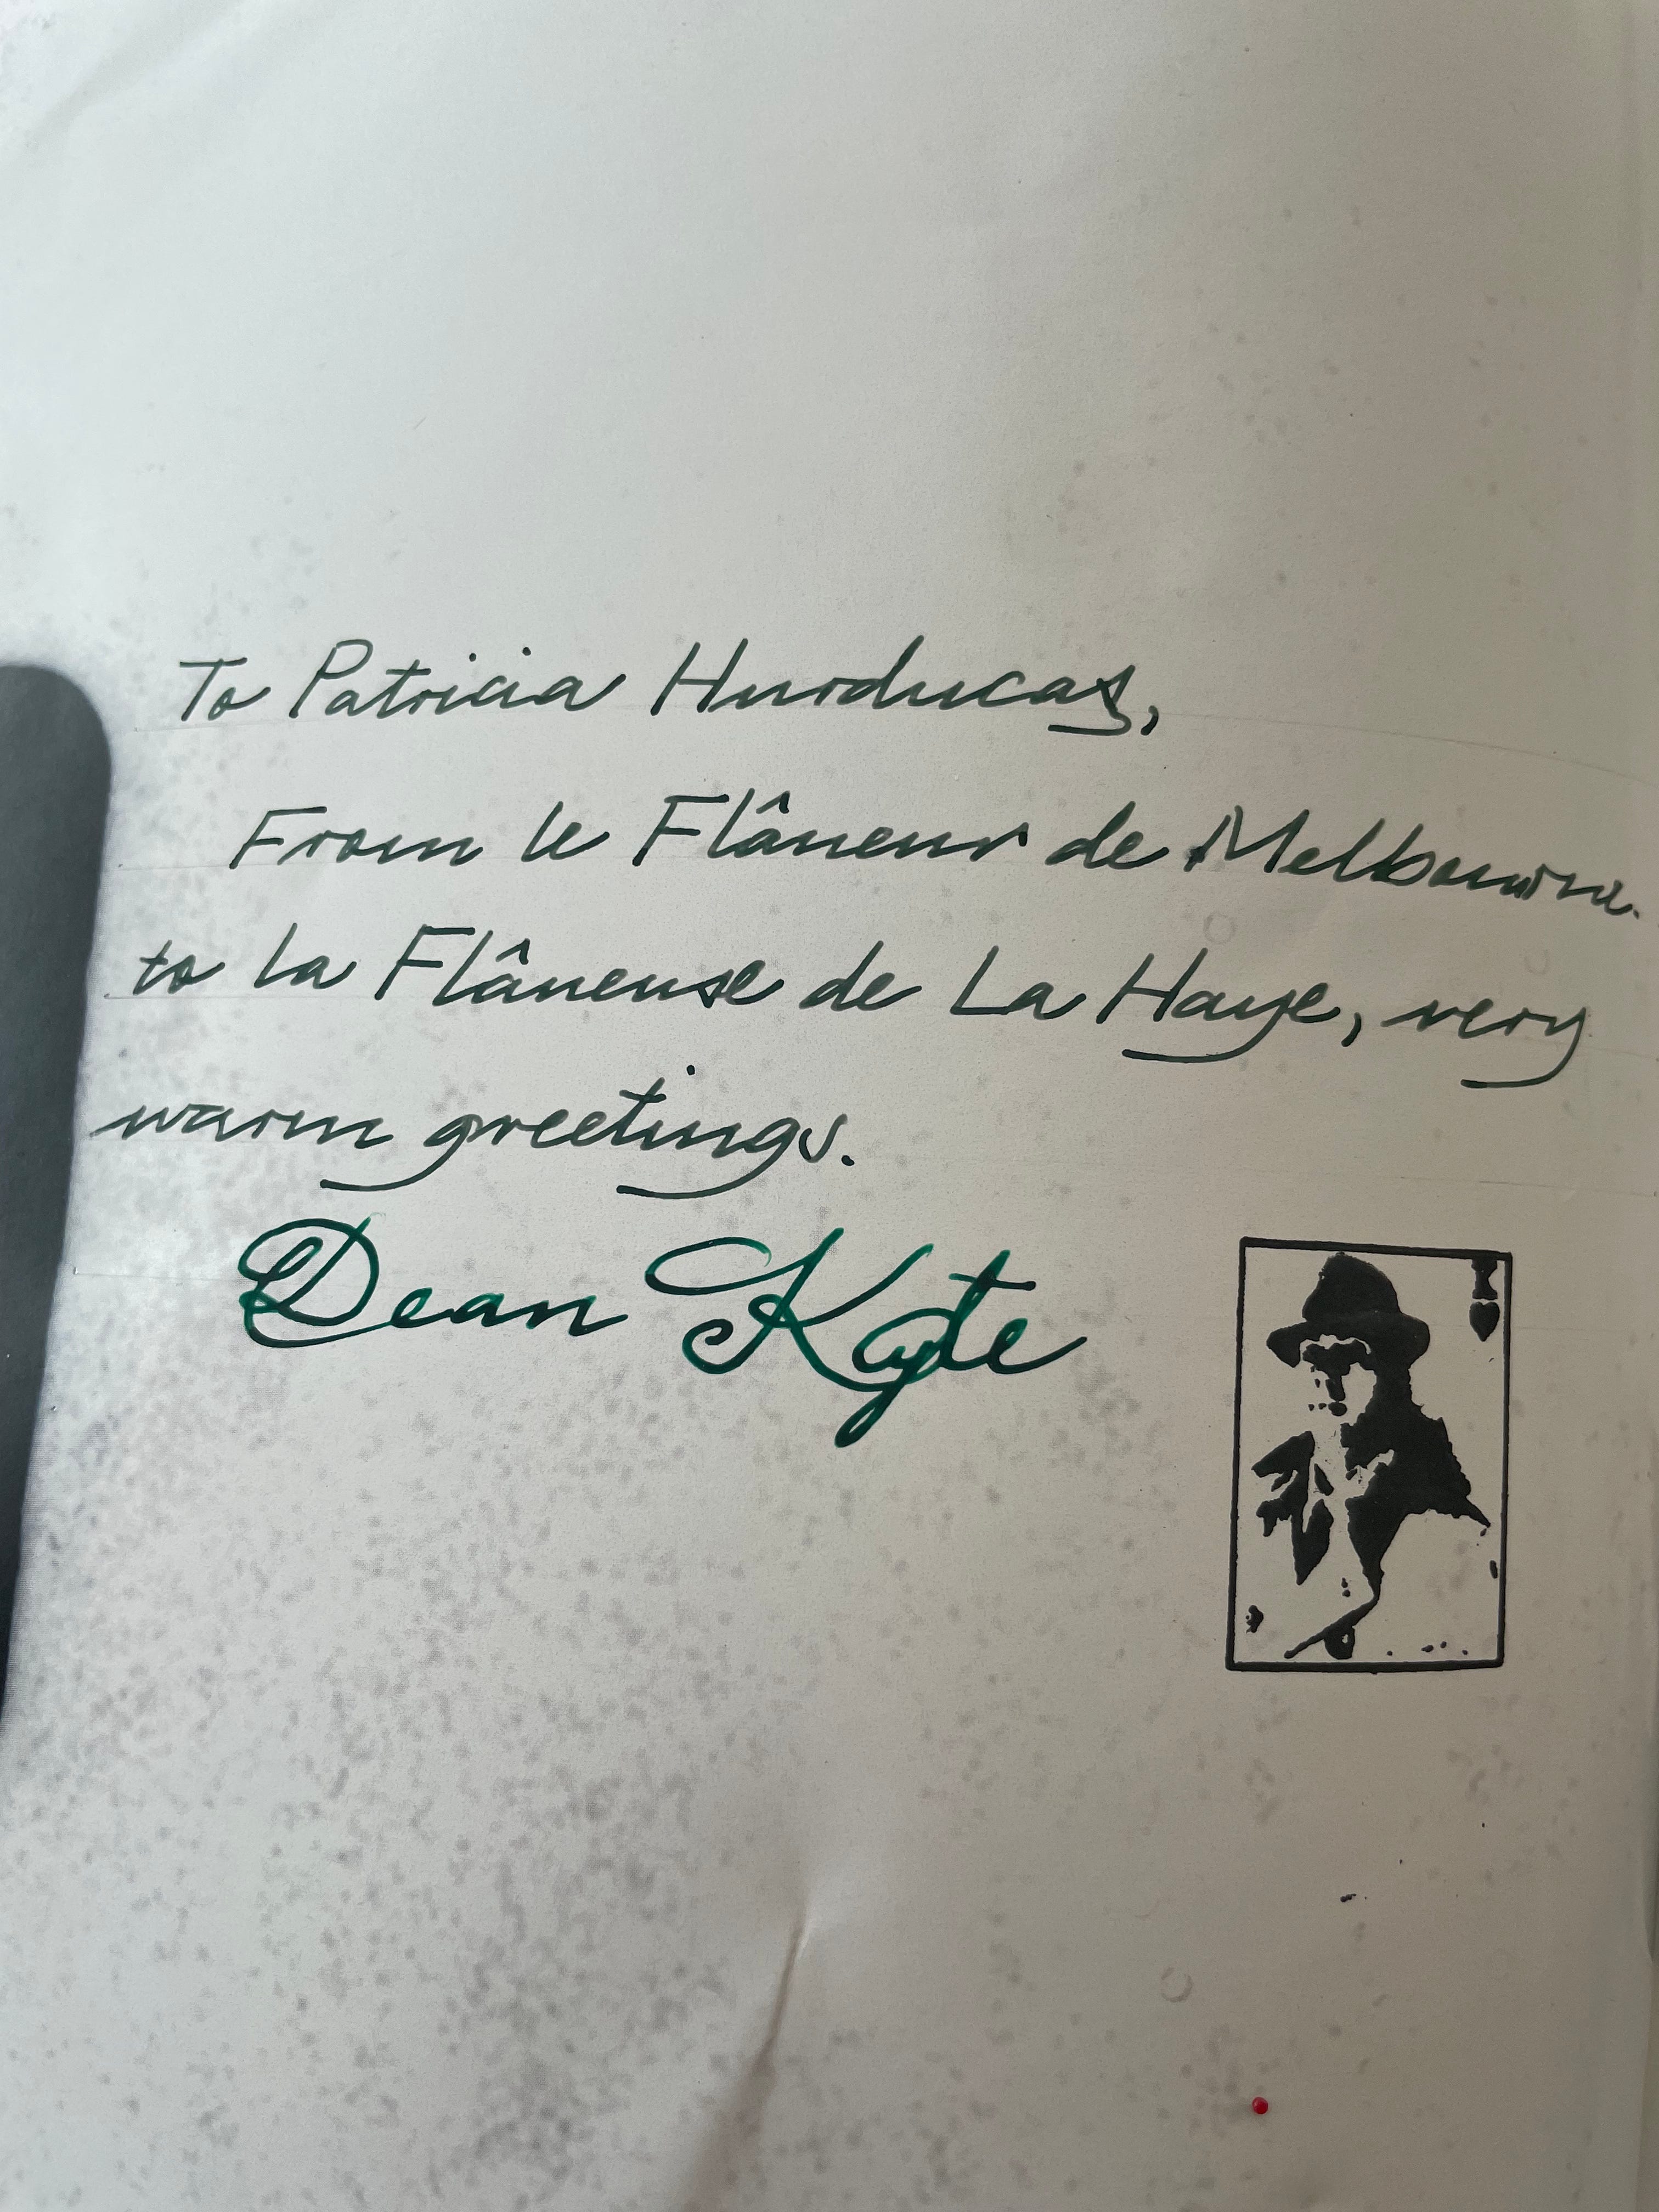 To Patricia Hurducaș,
From le Flâneur de Melbourne
to la Flâneuse de La Haye, very
warm greetings.
Dean Kyte
K